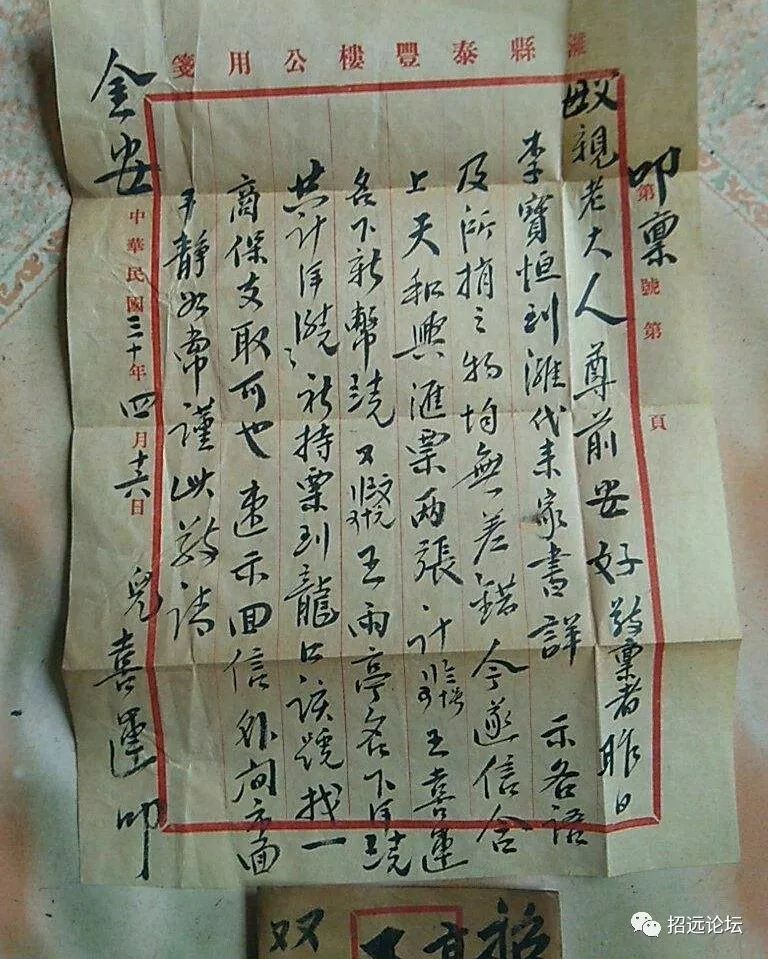 濰縣泰豐樓公用箋
第 號第 頁
叩稟
母親老大人尊前安好敬稟者昨日
李寶恒到濰代来家書詳 示各語
及所捎之物均無差錯今遂信含
上天和興滙票两張計 王喜運
名下新幣 又 王雨亭名下洋
共計洋 祈持票到龍口該號找一
商保支取可也速示回信外向方面
平静如常謹此敬请
金安
中華民國三十年四月十六日 兒喜運叩
双
招远论坛